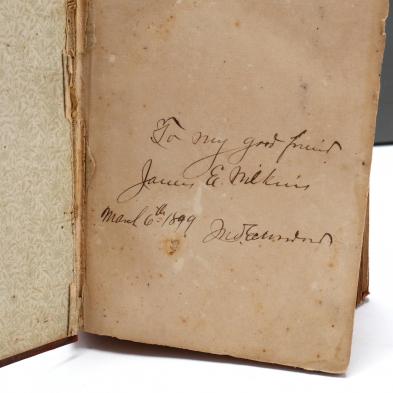 To my good friend
James E. Wilkins
March 6th 1899